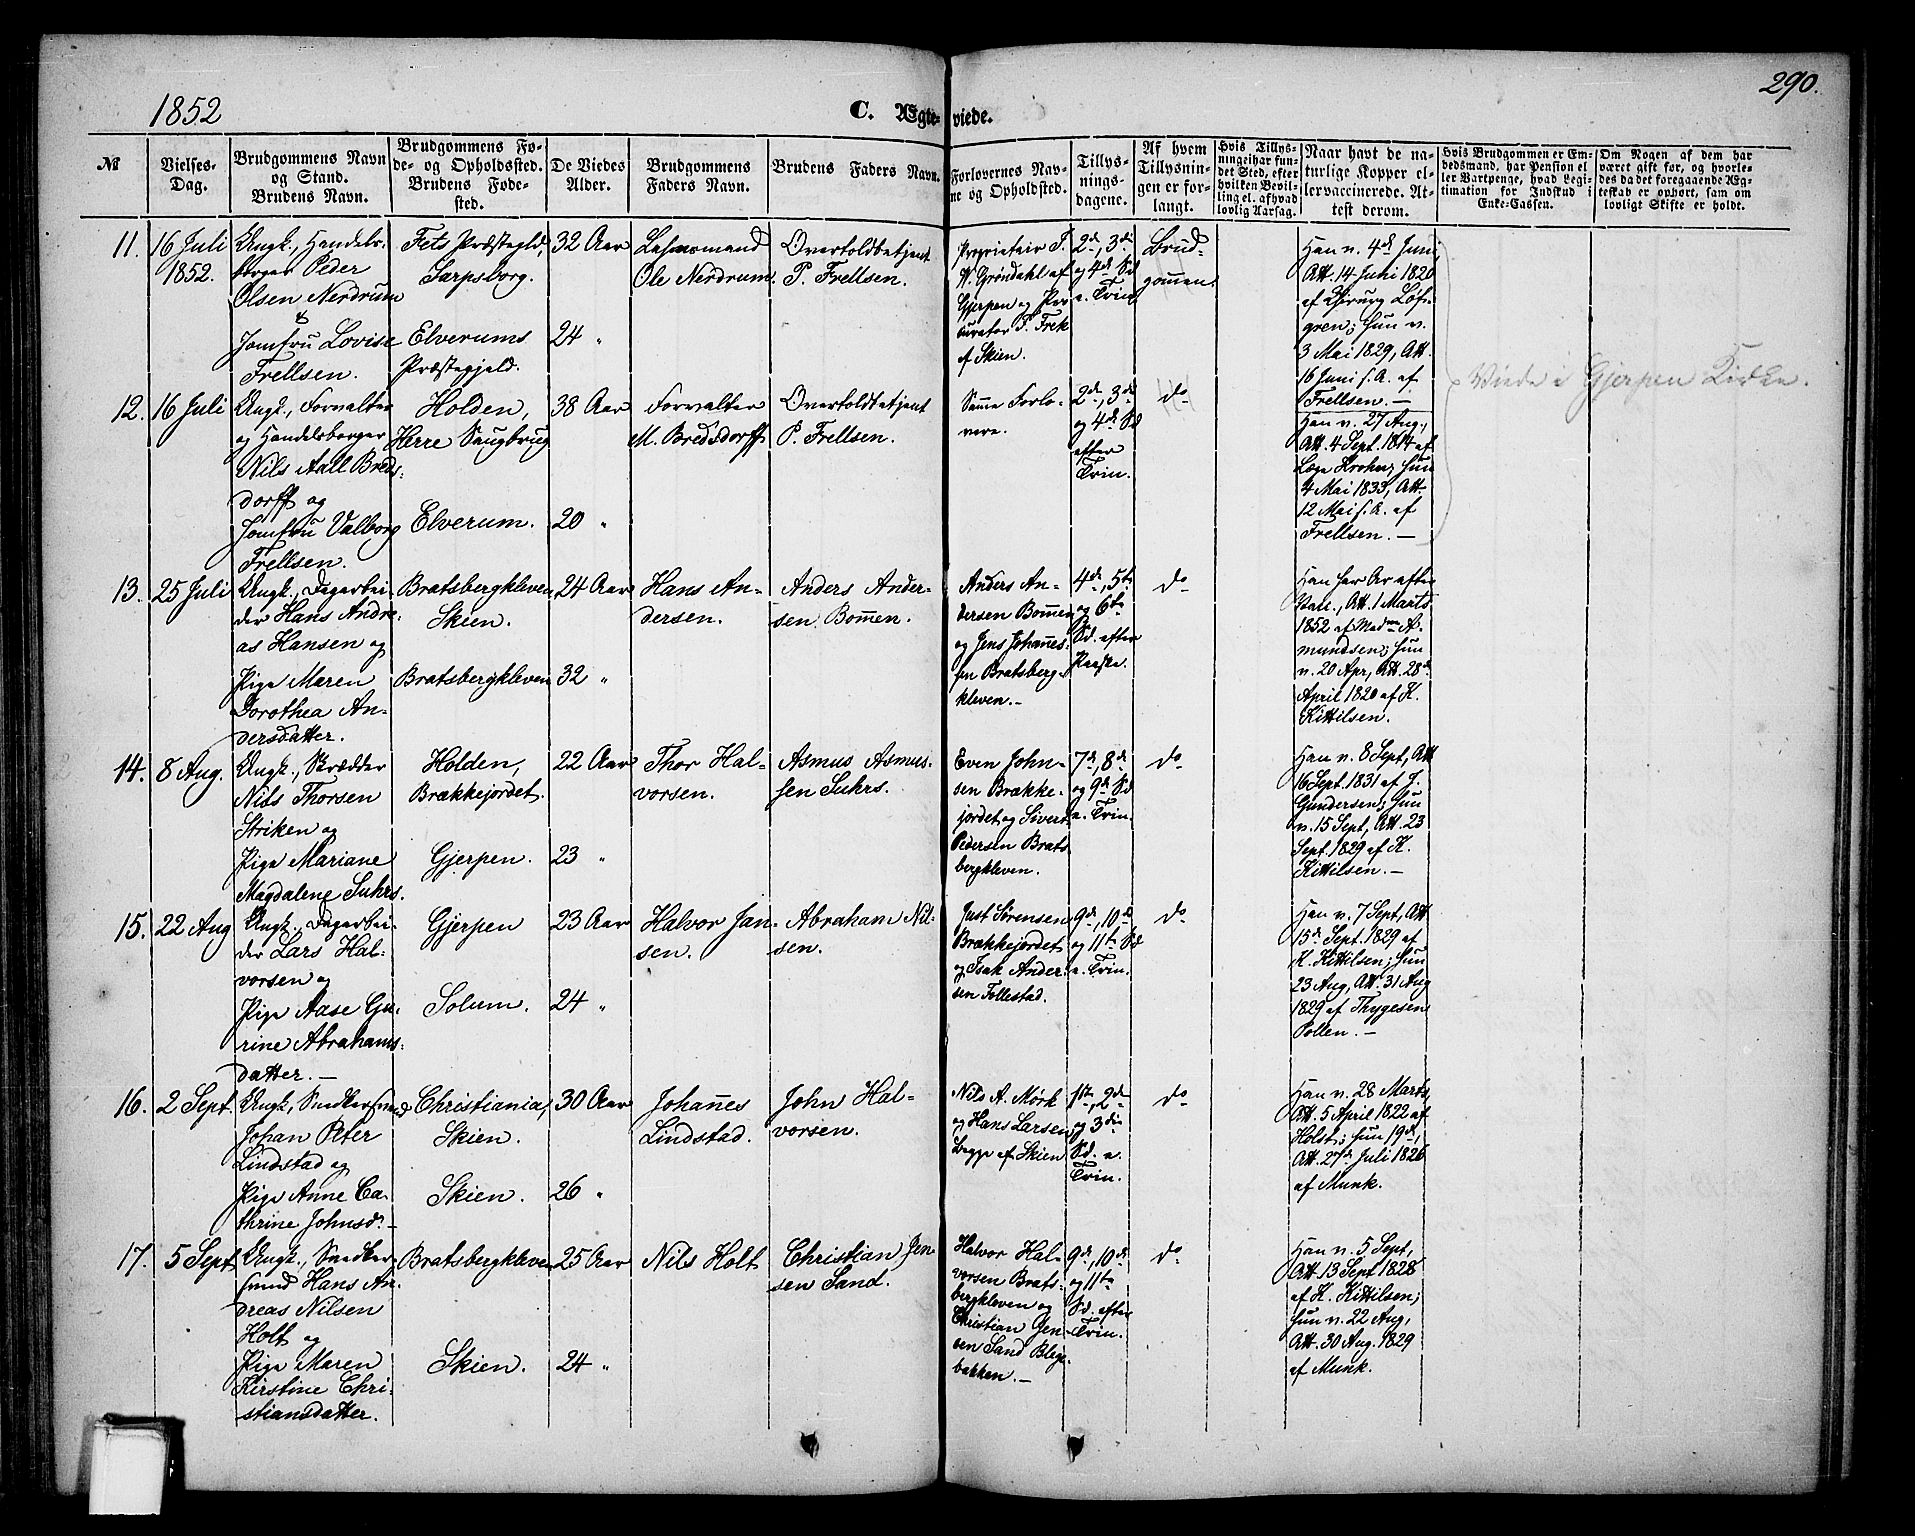 290.
1852
C. Ægte-
viede.
№
Vielses-
Dag.
Brudgommens Navn
og Stand.
Brudens Navn.
Brudgommens Fø-
de- og Opholdssted.
Brudens Føde-
sted.
De Viedes
Alder.
Brudgommens
Faders Navn.
Brudens Faders Navn.
Forlovernes Nav-
ne og Opholdsted.
Tillys-
nings-
dagene.
Af hvem
Tillysnin-
gen er for-
langt.
Hvis Tillys-
ningei har fun-
det Sted, efter
hvilken Bevil-
ling el. af hvad
lovlig Aarsag.
Naar havt de na-
turlige Kopper el-
ler vaccinerede. At-
test derom.
Hvis Brudgommen er Em-
bedsmand, har Pension el-
ler Vartpenge, hvad Legi-
timation for Indskud i
Enke-Cassen.
Om Nogen af dem har
været gift før, og hvorle-
des da det foregaaende Æg-
teskab er ophørt, sam om
lovligt Skifte er holdt.
11.
16 Juli
1852.
Ungk., Handels-
borger Peder
Olsen Nerdrum
&
Jomfru Lovise
Frellsen.
Fets Præstegjeld,
Sarpsborg.
Elverums
Præstegjeld.
32 Aar
24 "
Lehnsmand
Ole Nerdrum.
Overtoldbetjent
P. Frellsen.
Proprietair
Grøndahl af
Gjerpen og Pro
curator T. Frek
af Skien.
2de, 3die
og 4de Sd
e. Trin.
Brud-
gommen.
Han v. 4de Juni,
Att. 14 Juni 1820
af Chirurg Løf-
gren; hun v.
3 Mai 1829, Att.
16 Juni s. A. af
Frellsen. —
Viede i Gjerpen Kirke.
12.
16 Juli
Ungk., Forvalter
og Handelsborger
Nils Aall Breds-
dorff og
Jomfru Valborg
Frellsen.
Holden,
Herre Saugbrug
Elverum.
38 Aar
20 "
Forvalter
M. Bredsdorff
Overtoldbetjent
P. Frellsen.
Samme Forlo-
vere.
2de, 3die
og 4de Sd
efter
Trin.
do
Han v. 27 Aug.,
Att. 4 Sept. 1814 af
Læge Krohn; hun
4 Mai 1833, Att.
12 Mai s. A. af
Frellsen. —
13.
25 Juli
Ungk., Dagarbei
der Hans Andre-
as Hansen og
Pige Maren
Dorothea An-
dersdatter.
Bratsbergkleven
Skien.
Bratsbergkleven
24 Aar
32 "
Hans An-
dersen.
Anders Ander-
sen Bommen.
Anders An-
dersen Bommen
og Jens Johannes-
sen Bratsberg-
kleven. -
4de, 5te
og 6te
Sd. efter
Paaske.
do
Han har Ar efter
Vacc., Att. 1 Marts
1852 af Madm A-
mundsen; hun
v. 20 Apr, Att. 28de
April 1820 af K.
Kittilsen.
14.
8 Aug.
Ungk., Skrædder
Nils Thorsen
Striken og
Pige Mariane
Magdalene Suhrs.
Holden,
Brækkejordet.
Gjerpen.
22 Aar
23 "
Thor Hal-
vorsen.
Asmus Asmus-
sen Suhrs.
Even John-
sen Brække-
jordet og Sivert
Pedersen Brats
bergkleven.
7de, 8de
og 9de Sd
e. Trin.
do
Han v. 8 Sept, Att
16 Sept. 1831 af J.
Gundersen; hun
v. 15 Sept, Att. 23
Sept. 1829 af K.
Kittilsen. —
15.
22 Aug
Ungk., Dagarbei-
der Lars Hal-
vorsen og
Pige Aase Gu-
rine Abrahams-
datter. —
Gjerpen
Solum.
23 Aar
24 "
Halvor Jan-
sen.
Abraham Nil-
sen.
Just Sørensen
Brækkejordet
og Isak Ander-
sen Follestad.
9de, 10de
og 11te Sd
e. Trin.
do
Han v. 7 Sept, Att
15de Sept. 1829 af
K. Kittilsen; hun
23 Aug, Att. 31 Aug
1829 af Thygesen
Pollen. —
16.
2 Sept.
Ungk., Snedkersvend
Johan Peter
Lindstad og
Pige Anne Ca-
thrine Johnsdr. —
Christiania,
Skien.
Skien.
30 Aar
26 "
Johannes
Lindstad.
John Hal-
vorsen.
Nils A. Mørk
og Hans Larsen,
begge af Skien
1ste, 2de
og 3die
Sd. e.
Trin.
do
Han v. 28 Marts,
Att. 5 April 1822 af
Holst; hun 19de,
Att. 27de Juli 1826
af Munk.
17.
5 Sept
Ungk., Snedker-
svend Hans An-
dreas Nilsen
Holt og
Pige Maren
Kirstine Chri-
stiansdatter.
Bratsbergkleven
Skien.
25 Aar
24 "
Nils Holt
Christian Jen
sen Sand.
Halvor Hal-
vorsen Brats-
bergkleven og
Christian Jen-
sen Sand Blege-
bakken. —
9de, 10de
og 11te
Sd. efter
Trin.
do
Han v. 5 Sept,
Att. 13 Sept 1828
af K. Kittilsen;
hun v. 22 Aug,
Att. 30 Aug. 1829
af Munk.